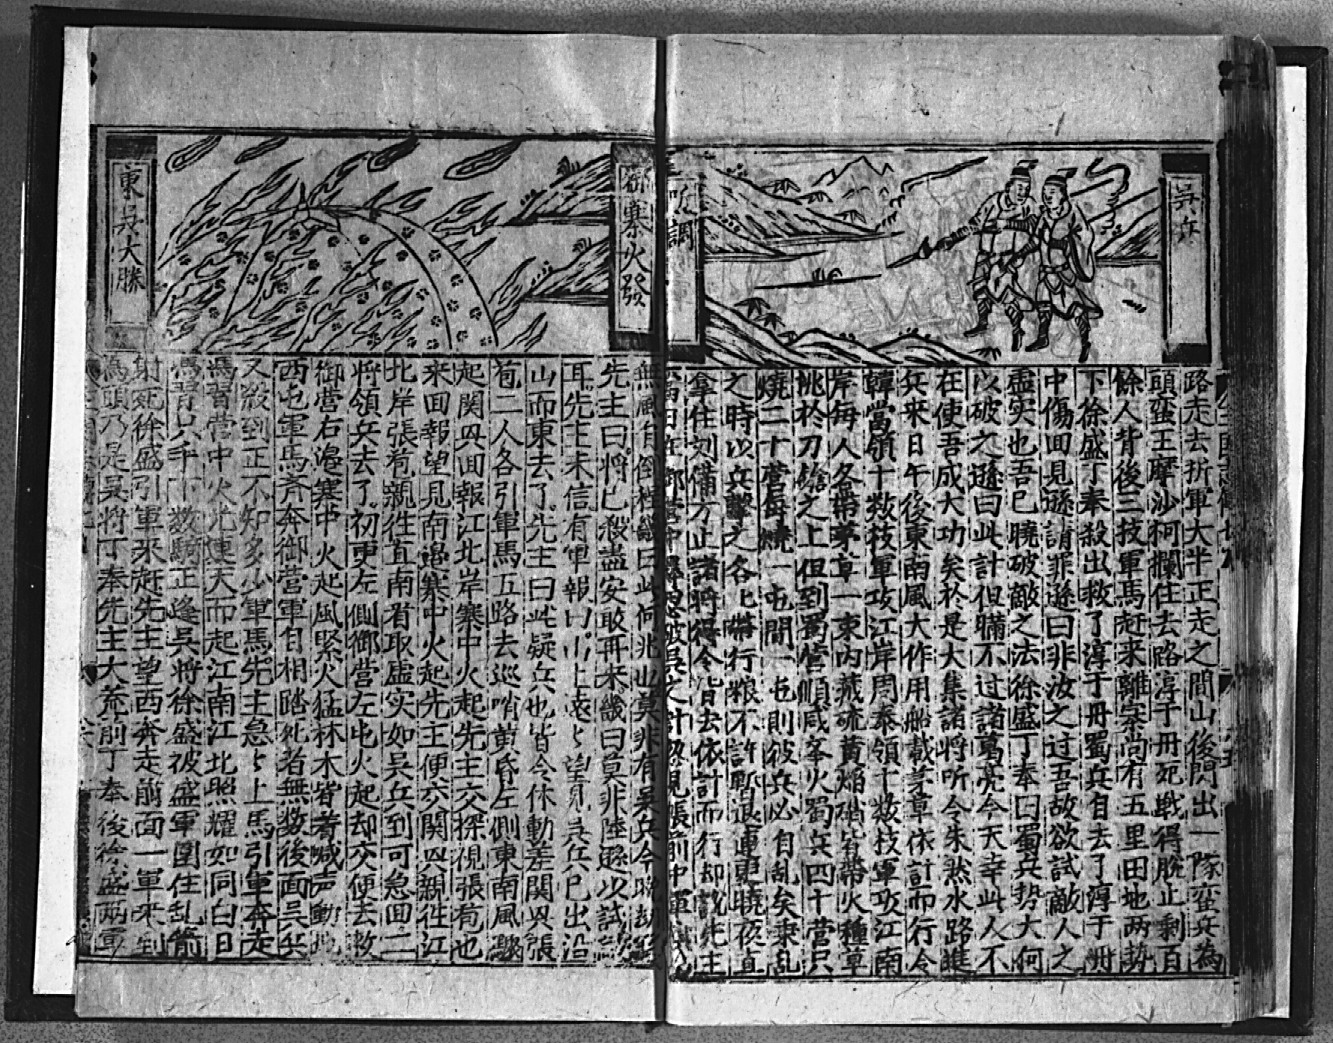 吳兵
路走去折軍大半正走之間山後閃出一隊蛮兵為
頭蛮王摩沙柯攔住去路淳于丹死戰得脫止剩百
餘人背後三技軍馬赶来離寨尚有五里田地两势
下徐盛丁奉殺出救了淳于丹蜀兵自去了淳于丹
中傷回見遜請罪遜曰非汝之过吾故欲試敵人之
虛实也吾已曉破敵之法徐盛丁奉曰蜀兵势大何
以破之遜曰此計但瞞不过諸葛亮今天幸此人不
在使吾成大功矣於是大集諸将听令朱然水路進
兵来日午後東南風大作用船載茅草依計而行令
韓當領十数技軍攻江岸周泰領十数技軍攻江南
岸每人各帶茅草一束內藏硫黄焰硝皆帶火種草
挑於刀鎗之上但到蜀营順風举火蜀兵四十营只
燒二十营每燒一屯間一屯則彼兵必自乱矣乘乱
之時以兵擊之各上帶行粮不許暫退連更曉夜直
拿住刘備方止諸将得令皆去依計而行却說先主
御寨火發
無風自倒程畿曰此何兆也莫非有吳兵今晚劫
先主曰将已殺盡安敢再来畿曰莫非陸遜以試
耳先主未信有軍報曰山上遠〻望見吳兵已出沿
山而東去了先主曰此疑兵也皆令休動差関興張
苞二人各引軍馬五路去巡哨黄昏左側東南風驟
起関興回報江北岸寨中火起先主交探視張苞也
来回報望見南邉寨中火起先主便交関興親徃江
北岸張苞親徃直南看取虛实如吳兵到可急回二
将領兵去了初更左側御营左屯火起却交便去救
御营右邉寨中火起風緊火猛林木皆着喊声動地
西屯軍馬斉奔御营軍自相踏死者無数後面吳兵
又殺到正不知多少軍馬先主急〻上馬引軍奔走
馮習营中火光連天而起江南江北照耀如同白日
馮習只手下数騎正逢吳将徐盛被盛軍圍住乱箭
射死徐盛引軍来赶先主望西奔走前面一軍来到
為頭乃是吳将丁奉先主大荒前丁奉後徐盛两軍
東吳大勝